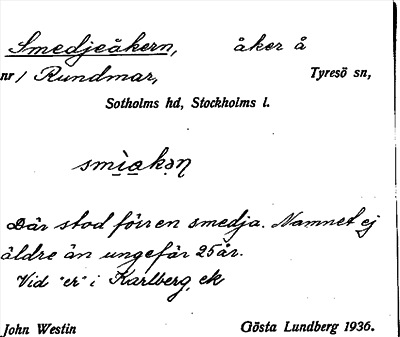 Smedjeåkern, åker å
nr 1 Rundmar, Tyresö sn,
Sotholms hd, Stockholms l.
smìakən
Där stod förr en smedja. Namnet ej
äldre än ungefär 25 år.
Vid "er" i Karlberg, ek
John Westin Gösta Lundberg 1936.